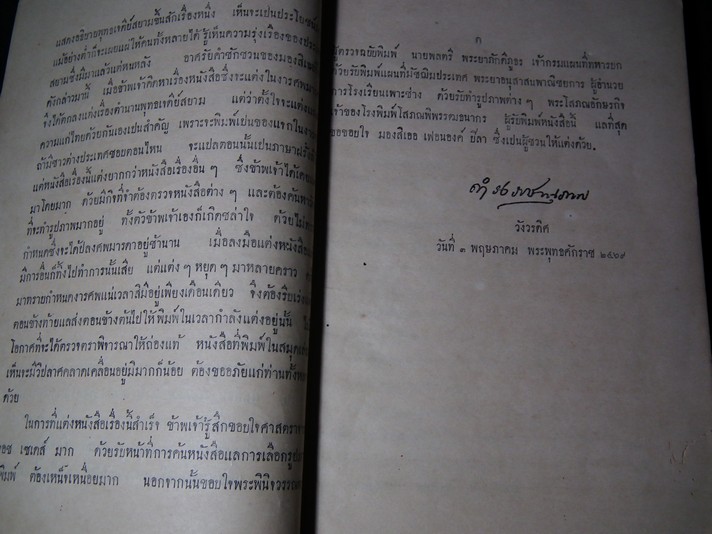 แสดงอธิบายพุทธเจดีย์สยามขึ้นสักเรื่องหนึ่ง เห็นจะเป็นประโยชน์
แม้อย่างต่ำก็จะเผยแผ่ให้คนทั้งหลายได้รู้เห็นความรุ่งเรืองของประ
สยามซึ่งมีมาแล้วแต่หนหลัง อาศรัยคำชักชวนของมองสิเออ
ดังกล่าวมานี้ เมื่อข้าพเจ้าคิดหาเรื่องหนังสือซึ่งจะแต่งในงารศพมารดา
จึงได้ตกลงแต่งเรื่องตำนานพุทธเจดีย์สยาม แต่ว่าตั้งใจจะแต่ง
ความแก่ไทยด้วยกันเองเปนสำคัญ เพราะจะพิมพ์เปนของแจกในงารศพ
ถ้ามีชาวต่างประเทศชอบตอนไหน จะแปลตอนนั้นเปนภาษาฝรั่ง
แต่หนังสือเรื่องนี้แต่งยากกว่าหนังสือเรื่องอื่น ๆ ซึ่งข้าพเจ้าได้เคย
มาโดยมาก ด้วยมีกิจที่จำต้องตรวจหนังสือต่าง ๆ และต้องค้นหา
ที่จะทำรูปภาพมากอยู่ ทั้งตัวข้าพเจ้าเองก็เกิดชล่าใจ ด้วยไม่
กำหนดซึ่งจะได้ปลงศพมารดาอยู่ช้านาน เมื่อลงมือแต่งหนังสือ
มีการอื่นก็ทิ้งไปทำการนั้นเสีย แต่แต่ง ๆ หยุด ๆ มาหลายคราว
มาทราบกำหนดงารศพแน่เวลาสิมีอยู่เพียงเดือนเดียว จึงต้องรีบเร่ง
ตอนข้างท้ายแลส่งตอนข้างต้นไปให้พิมพ์ในเวลากำลังแต่งอยู่นั้น
โอกาศที่จะได้ตรวจตราพิจารณาให้ถ่องแท้ หนังสือที่พิมพ์ในสมุดเล่ม
เห็นจะมีวิปลาศคลาดเคลื่อนอยู่มีมากก็น้อย ต้องขออภัยแก่ท่านทั้ง
ด้วย
ในการที่แต่งหนังสือเรื่องนี้สำเร็จ ข้าพเจ้ารู้สึกขอบใจศาสตราจารย์
ยอช เซเดส์ มาก ด้วยรับหน้าที่การค้นหนังสือแลการเลือกรูป
พิมพ์ ต้องเหน็จเหนื่อยมาก นอกจากนั้นขอบใจพระพินิจวรรณการ
ค
ตรวจฉบับพิมพ์ นายพลตรี พระยาภักดีภูธร เจ้ากรมแผนที่ทหารบก
ด้วยรับพิมพ์แผนที่มัชฌิมประเทศ พระยาอนุสาสนพาณิชยการ ผู้อำนวย
การโรงเรียนเพาะช่าง ด้วยรับทำรูปภาพต่าง ๆ พระโสภณอักษรกิจ
เจ้าของโรงพิมพ์โสภณพิพรรฒธนากร ผู้รับพิมพ์หนังสือนี้ แลที่สุด
ขอขอบใจ มองสิเออ เฟอนองค์ ปีลา ซึ่งเปนผู้ชวนให้แต่งด้วย.
ดำรงราชานุภาพ
วังวรดิศ
วันที่ ๓ พฤษภาคม พระพุทธศักราช ๒๔๖๙